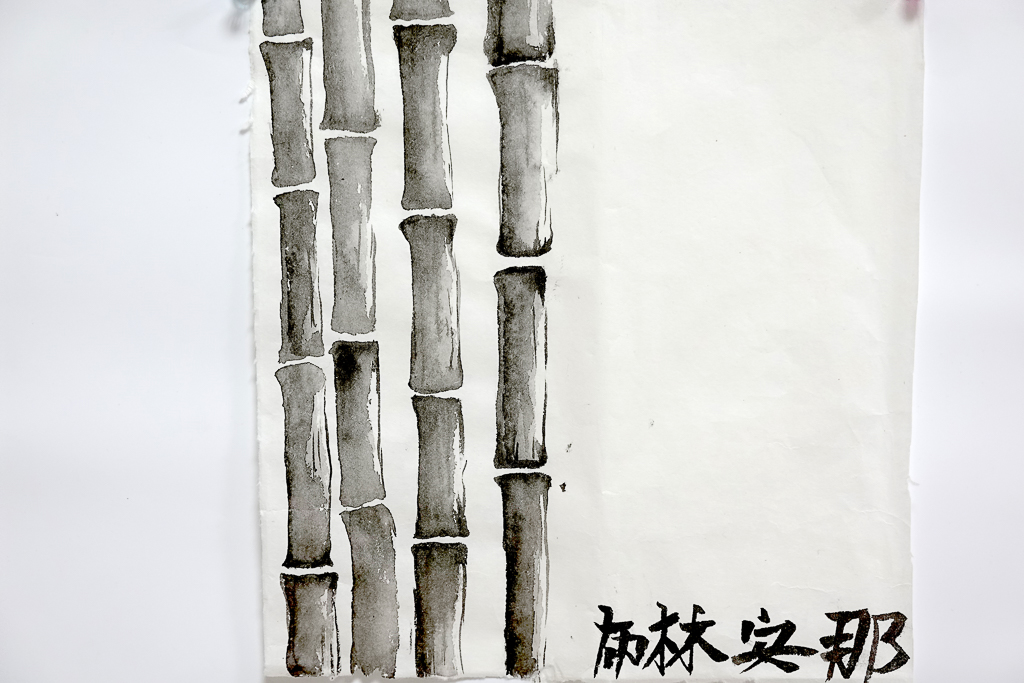 布林安那